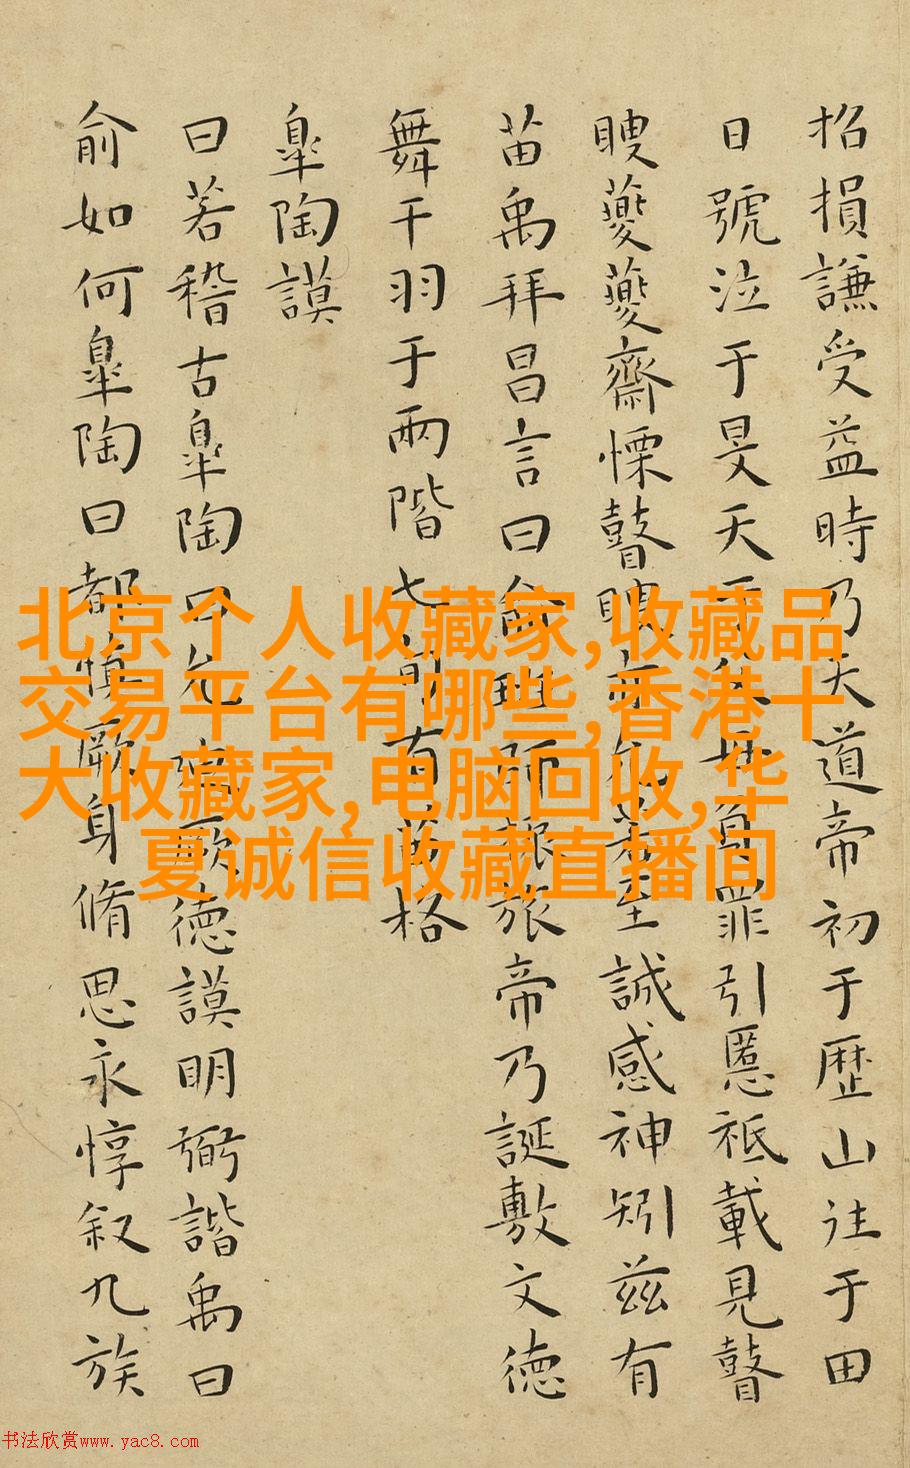 招損謙受益時乃天道帝初于歷山往于田
日號泣于旻天于父母負罪引慝祗載見瞽
瞍夔夔齋慄瞽瞍亦允若至諴感神矧茲有
苗禹拜昌言曰俞班師振旅帝乃誕敷文德
舞干羽于兩階七旬有苗格
皐陶謨
曰若稽古皐陶曰允迪厥德謨明弼諧禹曰
俞如何皐陶曰都慎厥身脩思永惇叙九族
北京个人收藏家,收藏品
交易平台有哪些,香港十
大收藏家,电脑回收,华
夏诚信收藏直播间
书法欣赏www.yac8.com